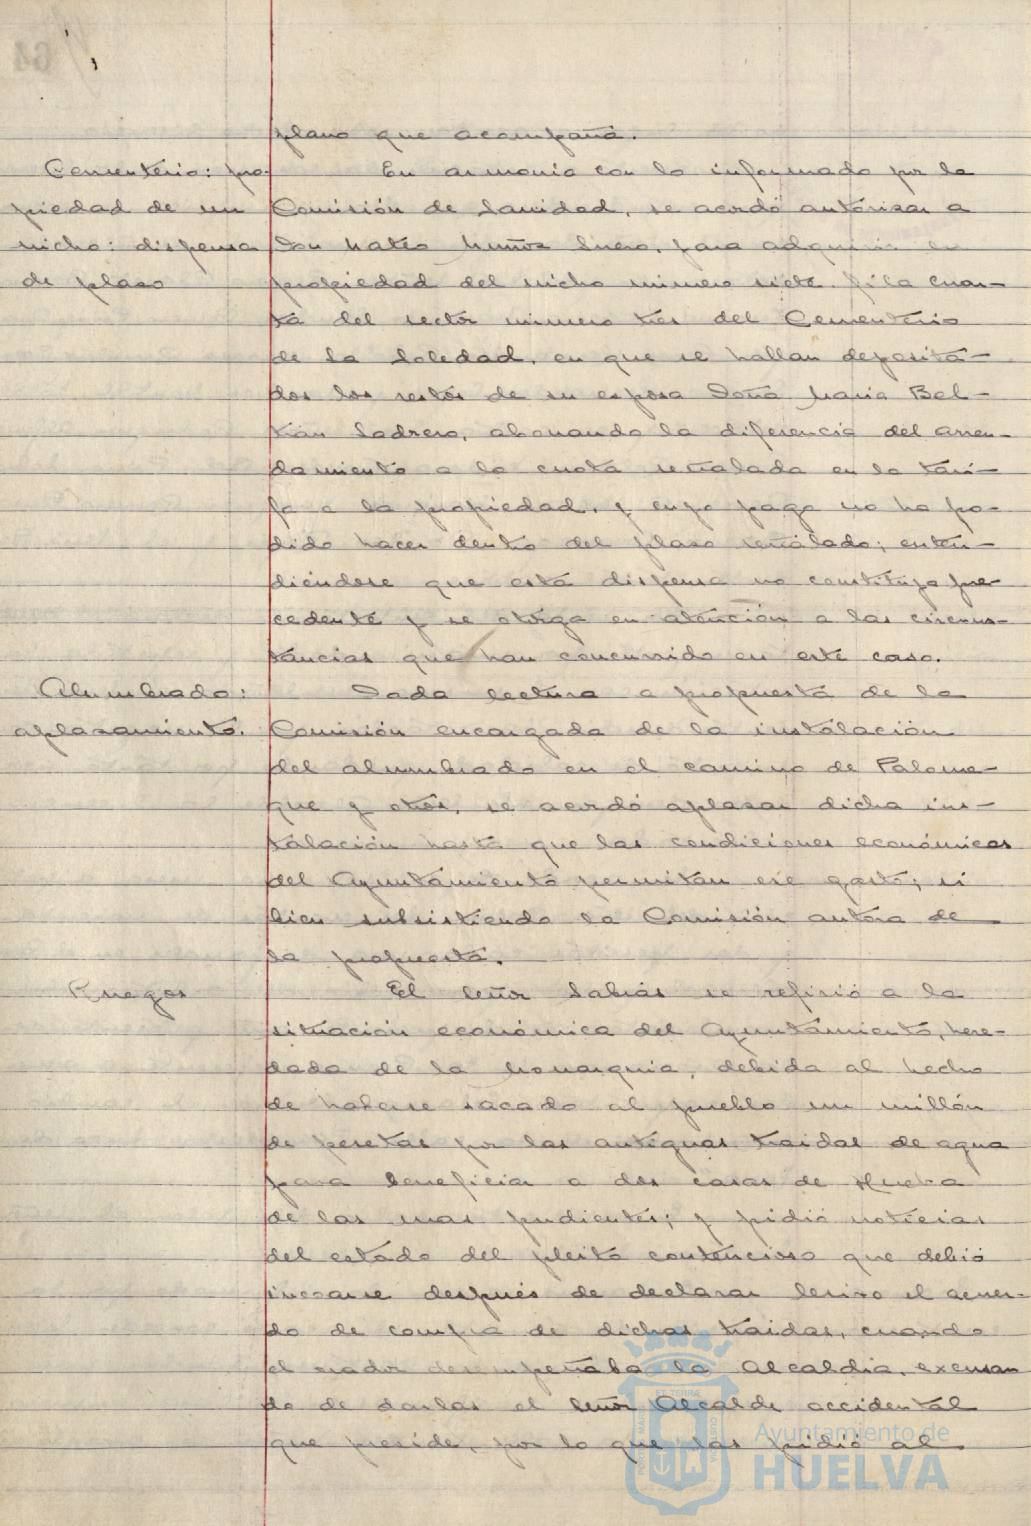 plano que acompaña.
Cementerio: pro-
piedad de un
nicho: dispensa
de plazo
En armonía con lo informado por la
Comisión de Sanidad, se acordó autorizar a
Don Mateo Muñoz Suero, para adquirir en
propiedad del nicho número siete fila cuar-
ta del sector número tres del Cementerio
de la Soledad, en que se hallan deposita-
dos los restos de su esposa Doña María Bel-
trán Ladrero, abonando la diferencia del arren-
damiento a la cuota señalada en la tari-
fa a la propiedad, y cuyo pago no ha po-
dido hacer dentro del plazo señalado; enten-
diéndose que esta dispensa no constituye pre-
cedente y se otorga en atención a las circuns-
tancias que han concurrido en este caso.
Alumbrado:
aplazamiento.
Dada lectura a propuesta de la
Comisión encargada de la instalación
del alumbrado en el camino de Palome-
que y otros, se acordó aplazar dicha ins-
talación hasta que las condiciones económicas
del Ayuntamiento permitan ese gasto; si
bien subsistiendo la Comisión autora de
la propuesta.
Ruegos
El señor Sabrás se refirió a la
situación económica del Ayuntamiento, here-
dada de la Monarquía, debida al hecho
de haberse sacado al pueblo un millón
de pesetas por las antiguas traidas de agua
para beneficiar a dos casas de Huelva
de las mas pudientes; y pidió noticias
del estado del pleito contencioso que debió
incoarse después de declarar lesivo el acuer-
do de compra de dichas traidas, cuando
el orador desempeñaba la Alcaldía, excusan
do de darlas el señor Alcalde accidental
que preside, por lo que las pidió al
Ayuntamiento de
HUELVA